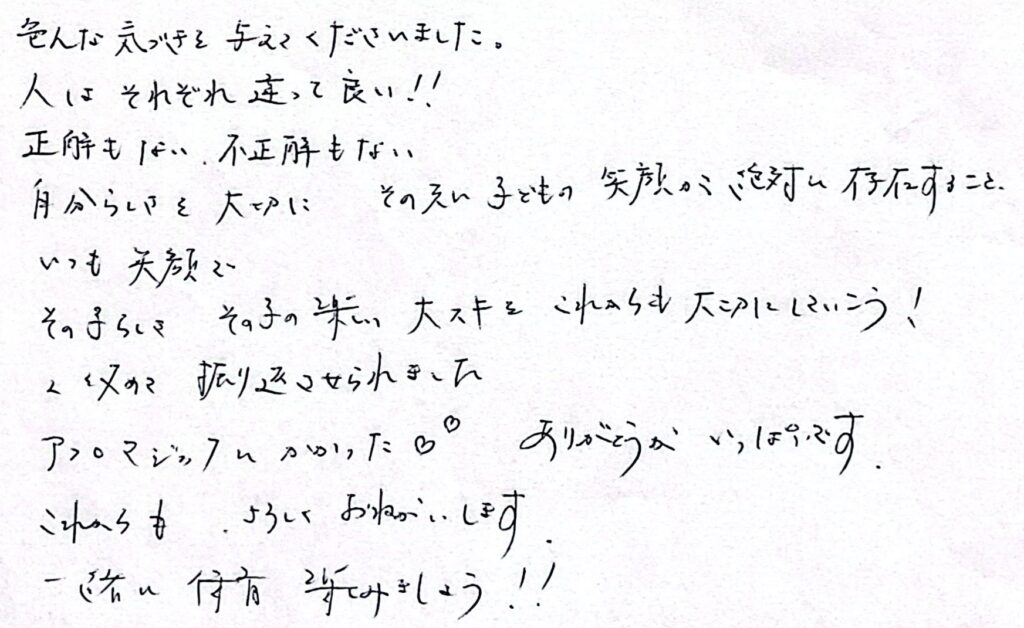 色んな気づきを与えてくださいました。
人はそれぞれ違って良い!!
正解もない、不正解もない
自分らしさを大切に その先に子どもの笑顔が絶対に存在すること、
いつも笑顔で
その子らしさ その子の楽しい 大スキを これからも大切にしていこう!
と改めて振り返させられました
アフロマジックにかかった♡♡ ありがとうがいっぱいです.
これからも、よろしくおねがいします.
一緒に 保育 楽しみましょう!!